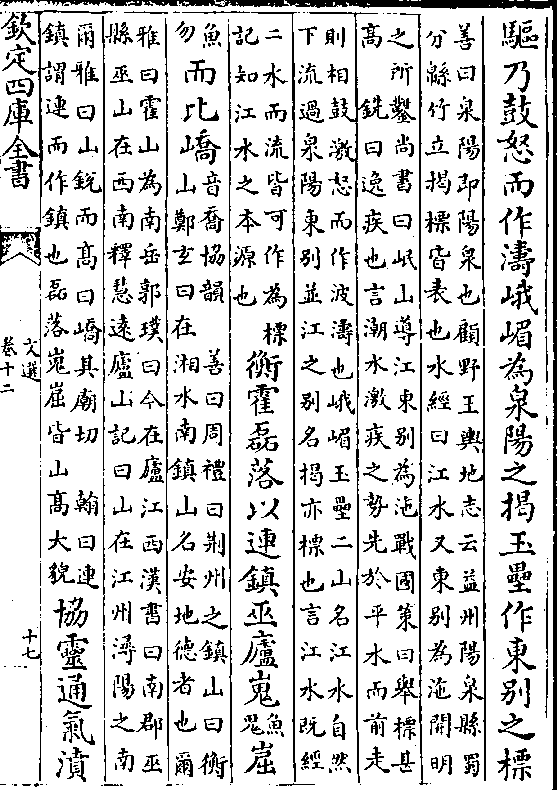 驅乃鼓怒而作濤峨嵋為泉陽之揭玉壘作東別之標
善曰泉陽即陽泉也顧野王輿地志云益州陽泉縣蜀
分緜竹立揭標皆表也水經曰江水又東別為沲開明
之所鑿尚書曰岷山導江東別為沲戰國策曰舉標甚
髙　銑曰逸疾也言潮水激疾之勢先於平水而前走
則相鼓激怒而作波濤也峨嵋玉壘二山名江水自然
下流過泉陽東別並江之別名揭亦標也言江水既經
二水而流皆可作為標
記知江水之本源也
衡霍磊落以連鎮巫廬嵬魚鬼崫
魚勿而比嶠
音喬協韻　善曰周禮曰荆州之鎮山曰衡
山鄭玄曰在湘水南鎮山名安地德者也爾
雅曰霍山為南岳郭璞曰今在廬江西漢書曰南郡巫
縣巫山在西南釋慧逺廬山記曰山在江州潯陽之南
爾雅曰山銳而髙曰嶠其廟切　翰曰連
鎮謂連而作鎮也磊落嵬崫皆山髙大貌
協靈通氣濆
欽定四庫全書
文選
卷十二
十七